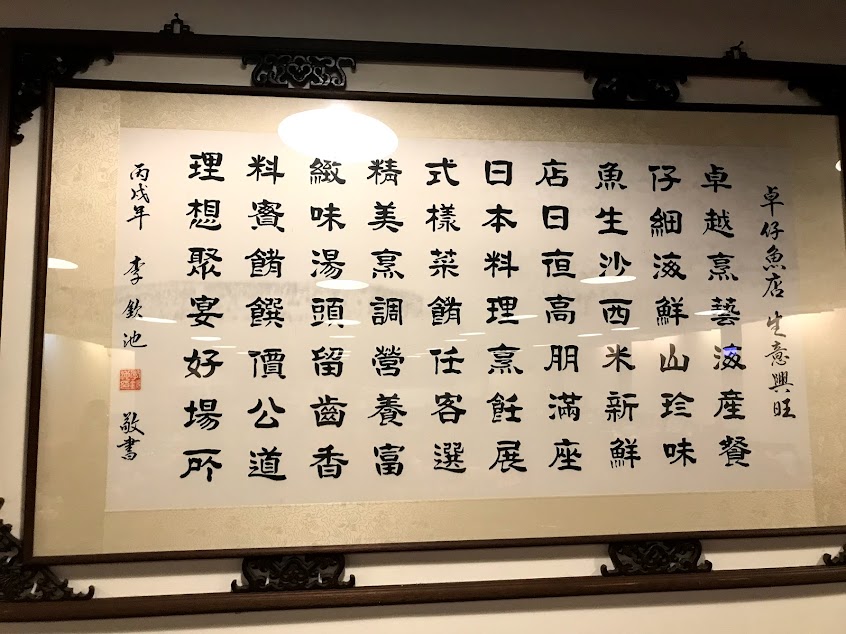 卓仔魚店生意興旺
卓越烹藝海産餐
仔細海鮮山珍味
魚生沙西米新鮮
店日恒高朋滿座
日本料理烹飪展
式樣菜餚任客選
精美烹調營養富
緻味湯頭留齒香
料實餚饌價公道
理想聚宴好場所
丙戌年 李欽池 敬書